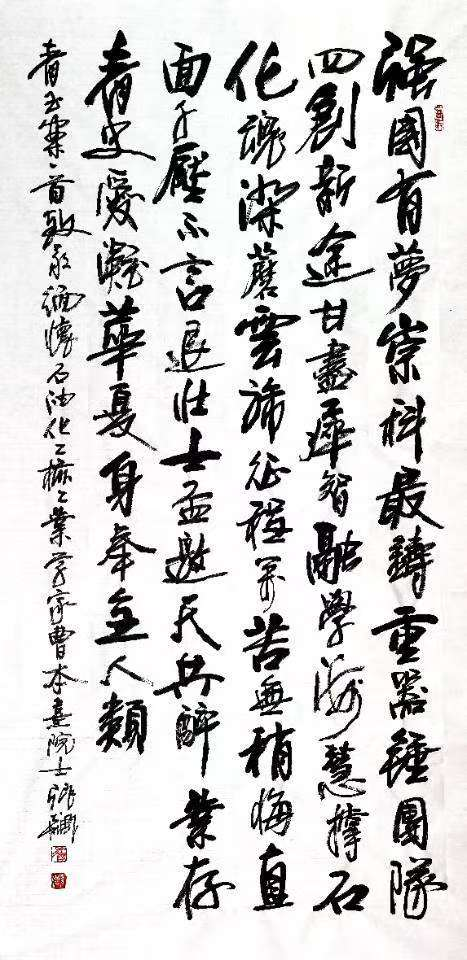 强國有夢崇科最鑄重器錘團隊
四創新途甘盡瘁智融學海慧撑石
化魂染蘑雲旆征程万苦無稍悔直
面千壓不言退壮士盃邀天共醉業存
青史愛凝華夏身奉全人類
青玉案一首致敬緬懷石油化工核工業学家曹本熹院士張